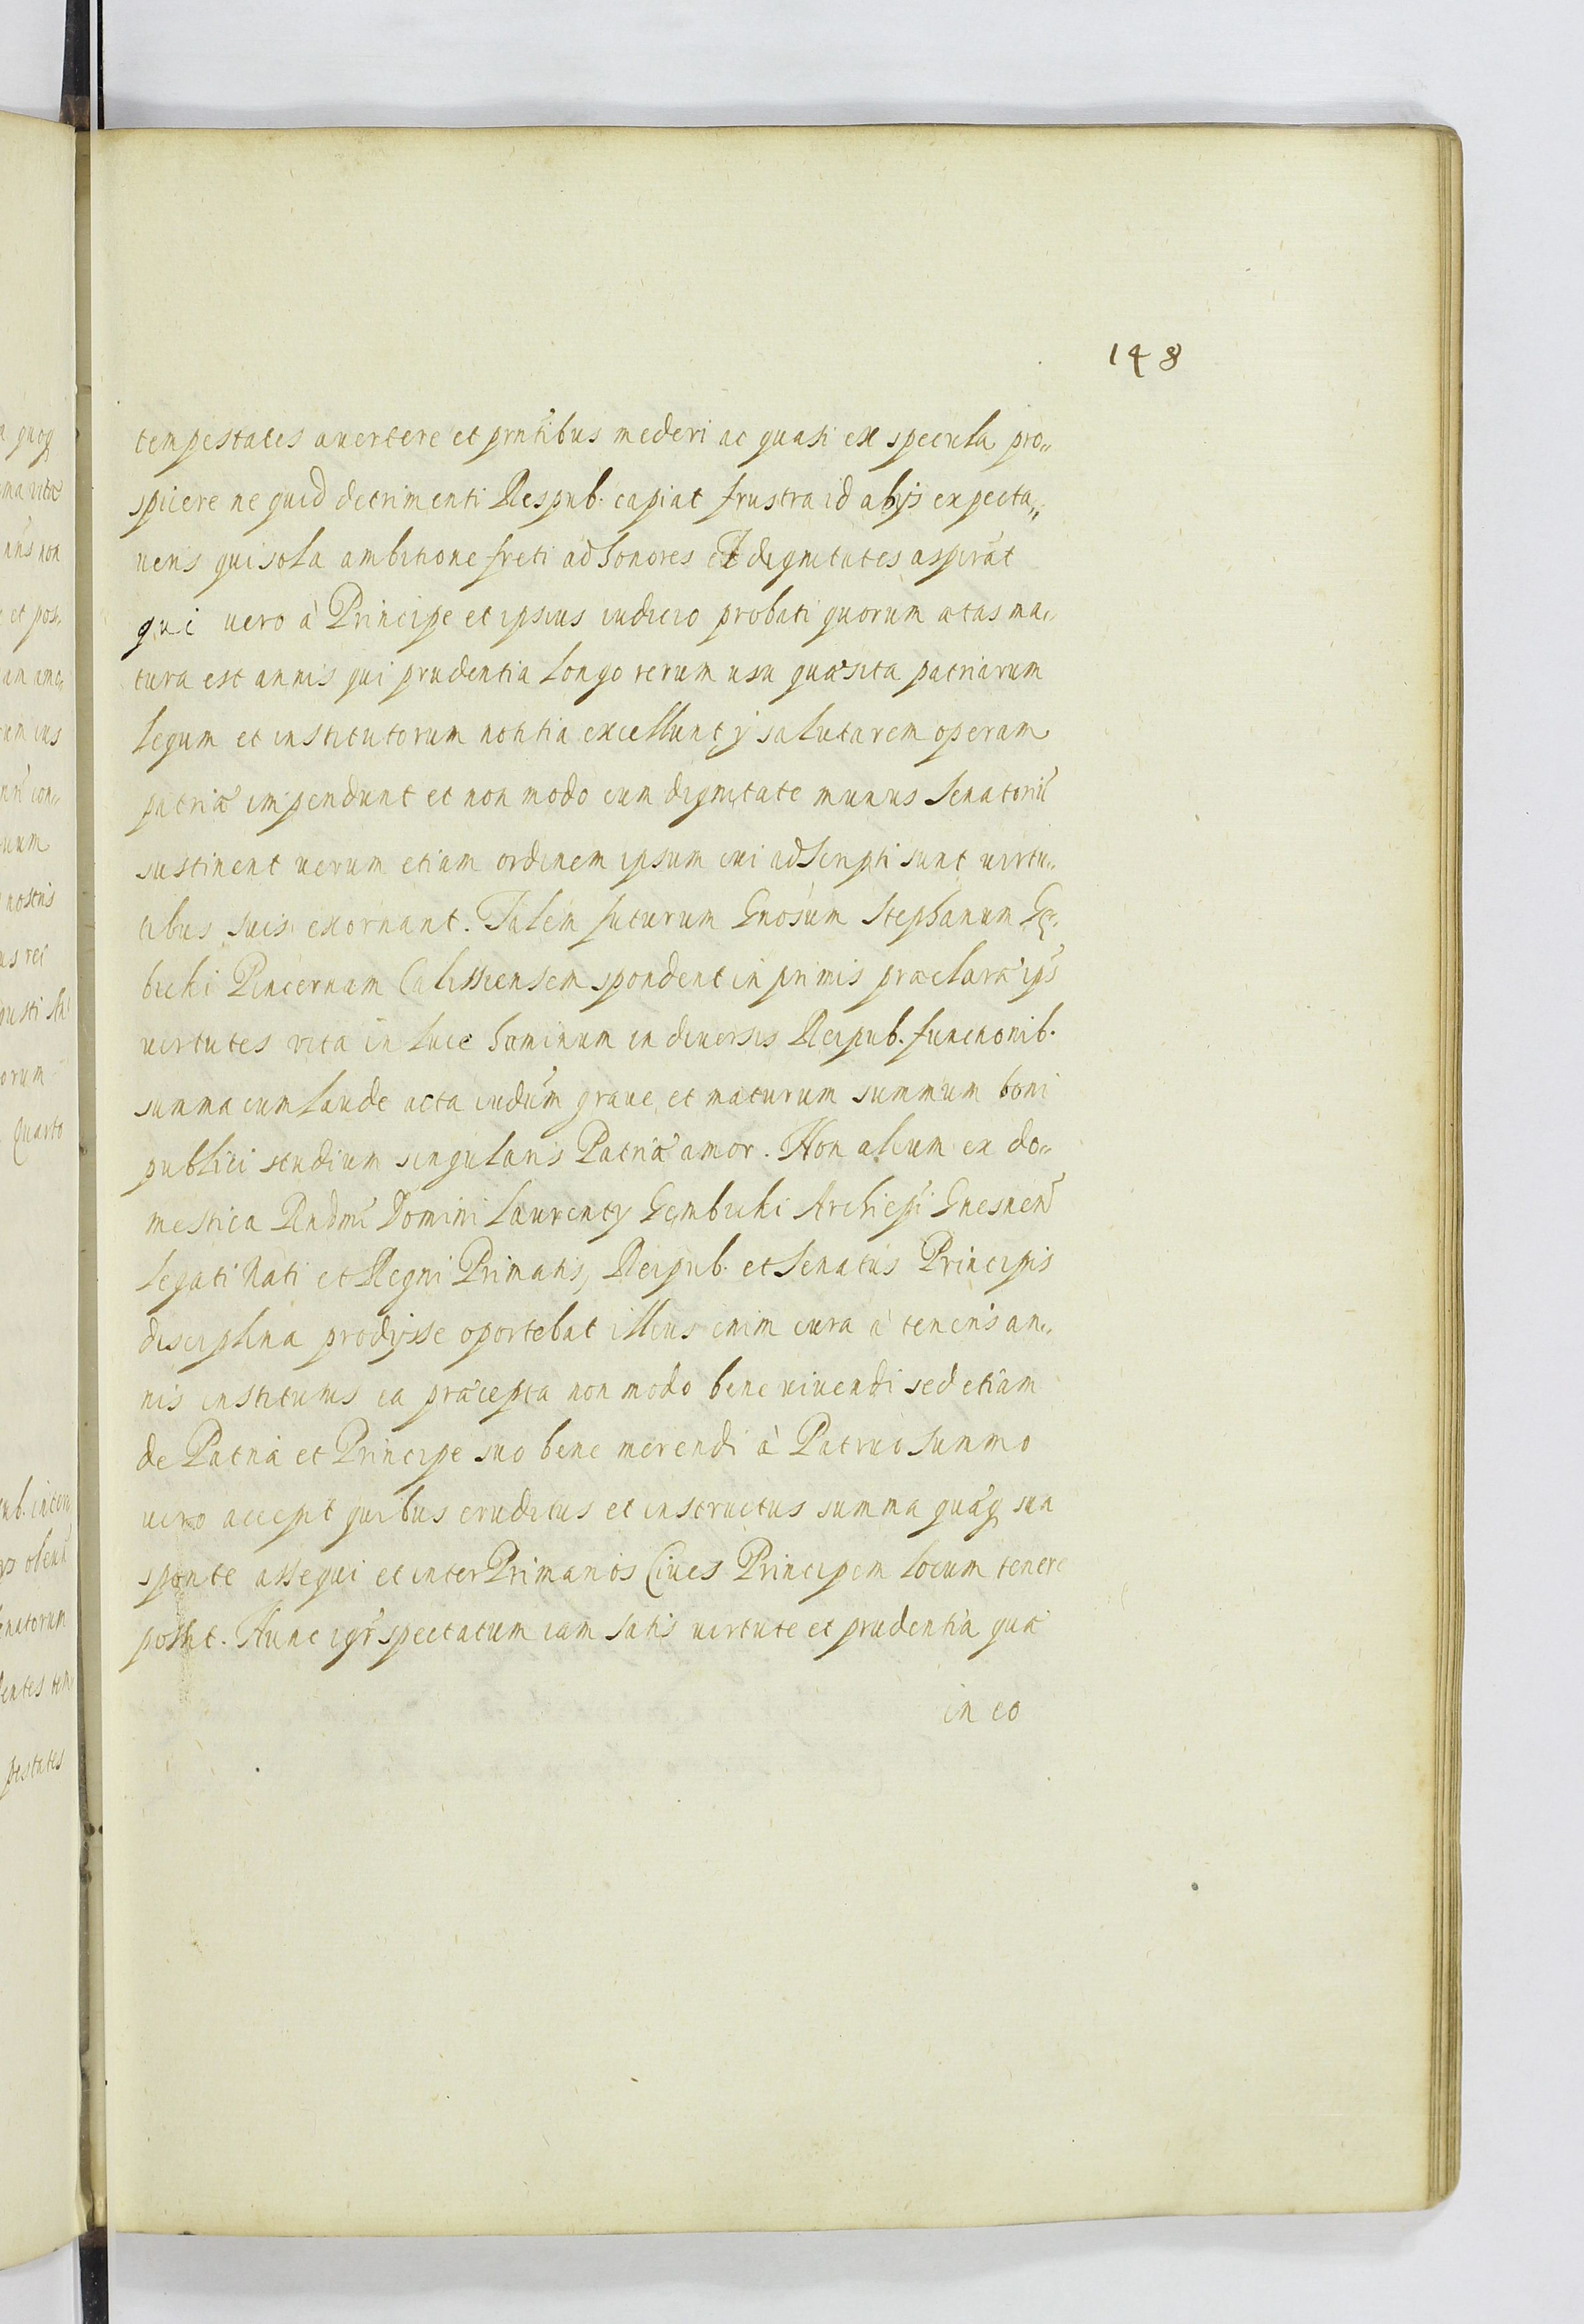 148
tempestates auertere et prntibus mederi ac quasi ex specula pro„
spicere ne quid detrimenti Respub. capiat frustra id abijs expecta„
ueris qui sola ambitione freti ad honores et dignitates aspirāt
qui uero à Principe et ipsius iudicio probati quorum ætas ma„
tura est annis qui prudentia longo rerum usu quæsita patriarum
legum et institutorum notitia excellunt ÿ salutarem operam
patriæ impendunt et non modo cum dignitate munus Senatoriū
sustinent uerum etiam ordinem ipsum cui adscripti sunt uirtu„
tibus suis exornant. Talem futurum Gnosum Stephanum Gę„
bicki Pincernam Calissiensem spondent in primis præclaræ ips
uirtutes vita in luce hominum in diuersis Reipub. functionib.
summa cum laude acta iudum graue et maturum summum boni
publici studium singularis Patriæ amor. Non alium ex do„
mestica Rndmi Domini Laurenty Gembicki Archiepi Gnesnen
legati Nati et Regni Primatis, Reipub. et Senatus Principis
disciplina prodysse oportebat illius enim cura à teneris an„
nis institutus ea præcepta non modo bene uiuendi sed etiam
de Patria et Principe suo bene merendi à Patruo summo
uiro accepit quibus eruditus et instructus summa quæq sua
sponte assequi et inter Primarios Ciues Principem locum tenere
possit. Hunc igr spectatum iam satis uirtute et prudentia quæ
in eo
a quoq
ma vitæ
non
et pos„
an amo„
um ius
con„
uum
nostris
us rei
orum
Quarto
natorum
entes tem
pestates